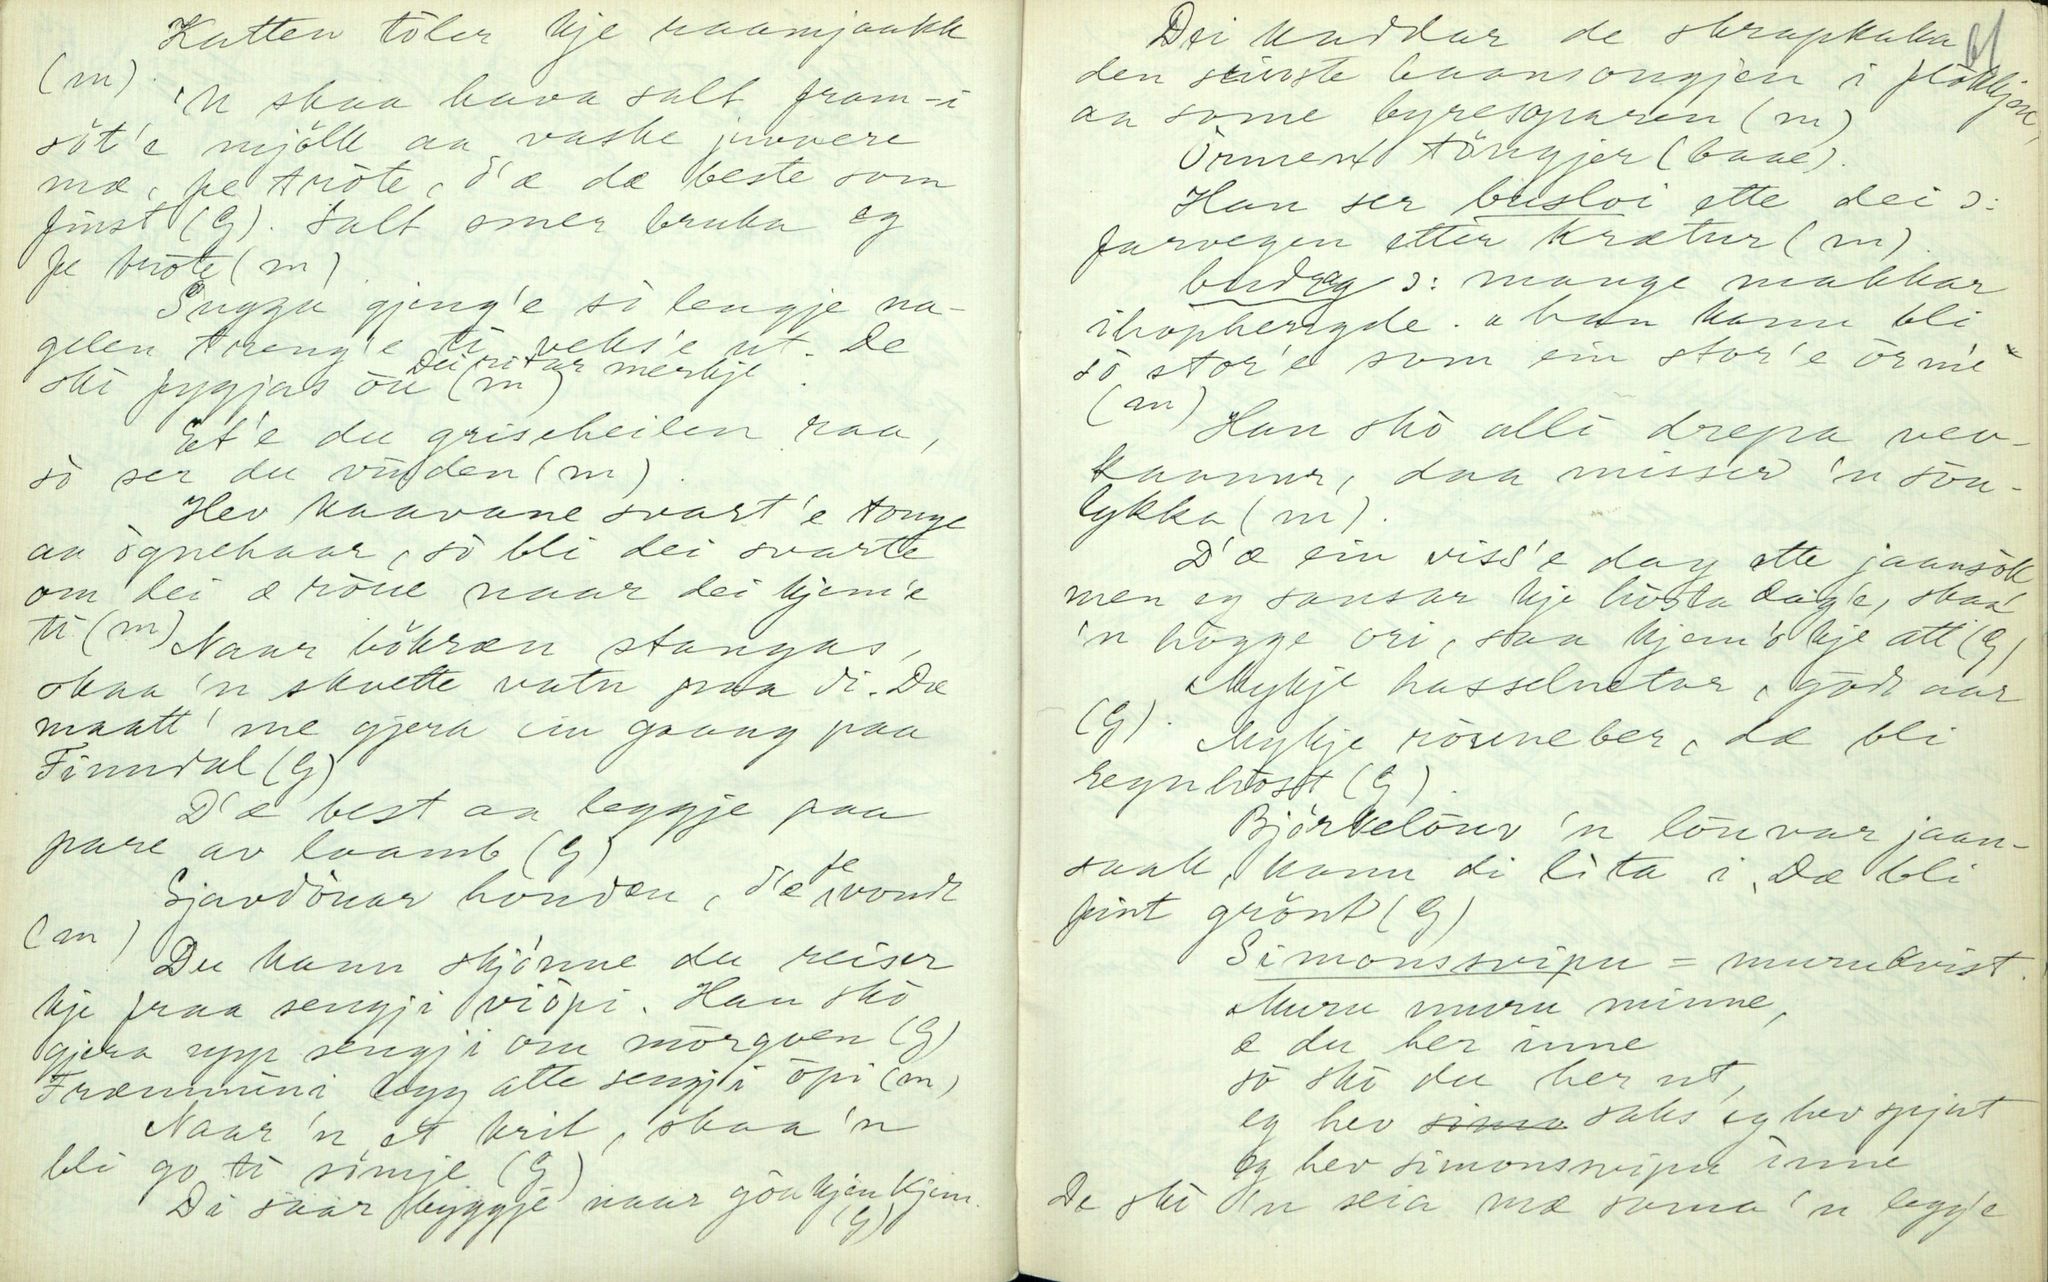 Katten tòler kje raamjaakk
(m)
'N skaa hava salt fram-i
söt'e mjölk aa vaske juvvere
mæ, fe tròte, d'æ dæ beste som
finst (G). Salt smer bruka eg
fe tròte (m)
Sugga gjeng'e sò lengje na-
gelen treng'e ti veks'e ut. De
Dei ritar merkje
ski fygjas òu (m)
Et'e du griseheilen raa,
sò ser du vinden (m).
Hev kaavane svart'e tonge
aa ògnehaar, sò bli dei svarte
om dei æ ròue naar dei kjem'e
ti (m)
Naar bòkræn stangas,
skaa 'n skvette vatn paa di. Dæ
maatt' me gjera ein gaang paa
Finndal (G)
D'æ best aa leggje paa
pare av laamb (G)
Sjavdòuar hondæn, d'æ fe vondt
(m)
Du kann skjònne du reiser
kje fraa sengji viòpi. Han skò
gjera upp sengji om mòrgoen (G)
Fræmmini legg atte sengji òpi (m)
Naar 'n et krit, skaa 'n
bli go ti símje (G)
Di saar byggje naar gòukjen kjem.
(G)
61
Dei kaddar de skrapkaka
den seivste baansongjen i flòkkjen,
aa some byresgaren (m)
Òrmen töngjer (baae).
Han ser busloi ette dei ɔ:
farvegen etter krætur (m).
budrag ɔ: mange makkar
ihophengde. han kann bli
sò stor'e som ein stor'e òrm'e
(m)
Han skò alli drepa vev-
kaanur, daa misser 'n sòu-
lykka (m).
D'æ ein viss'e dag ette jaansòk
men eg sansar kje hòsta dag'e, skaa
'n hògge ori, saa kjem'o kje att (G)
Mykje hasselnetar, godt aar
(G).
Mykje ròuneber, dæ bli
regnhòst (G).
Björkelòuv 'n lòuvar jaan-
saak, kann di lita i. Dæ bli
fint grònt (G)
Simonssvipu = murukvist.
Muru muru minne,
æ du her inne
sò skò du her ut,
eg hev saks' eg hev spjut
eg hev simonssvipu inne
De skò 'n seia mæ soma 'n legg'e